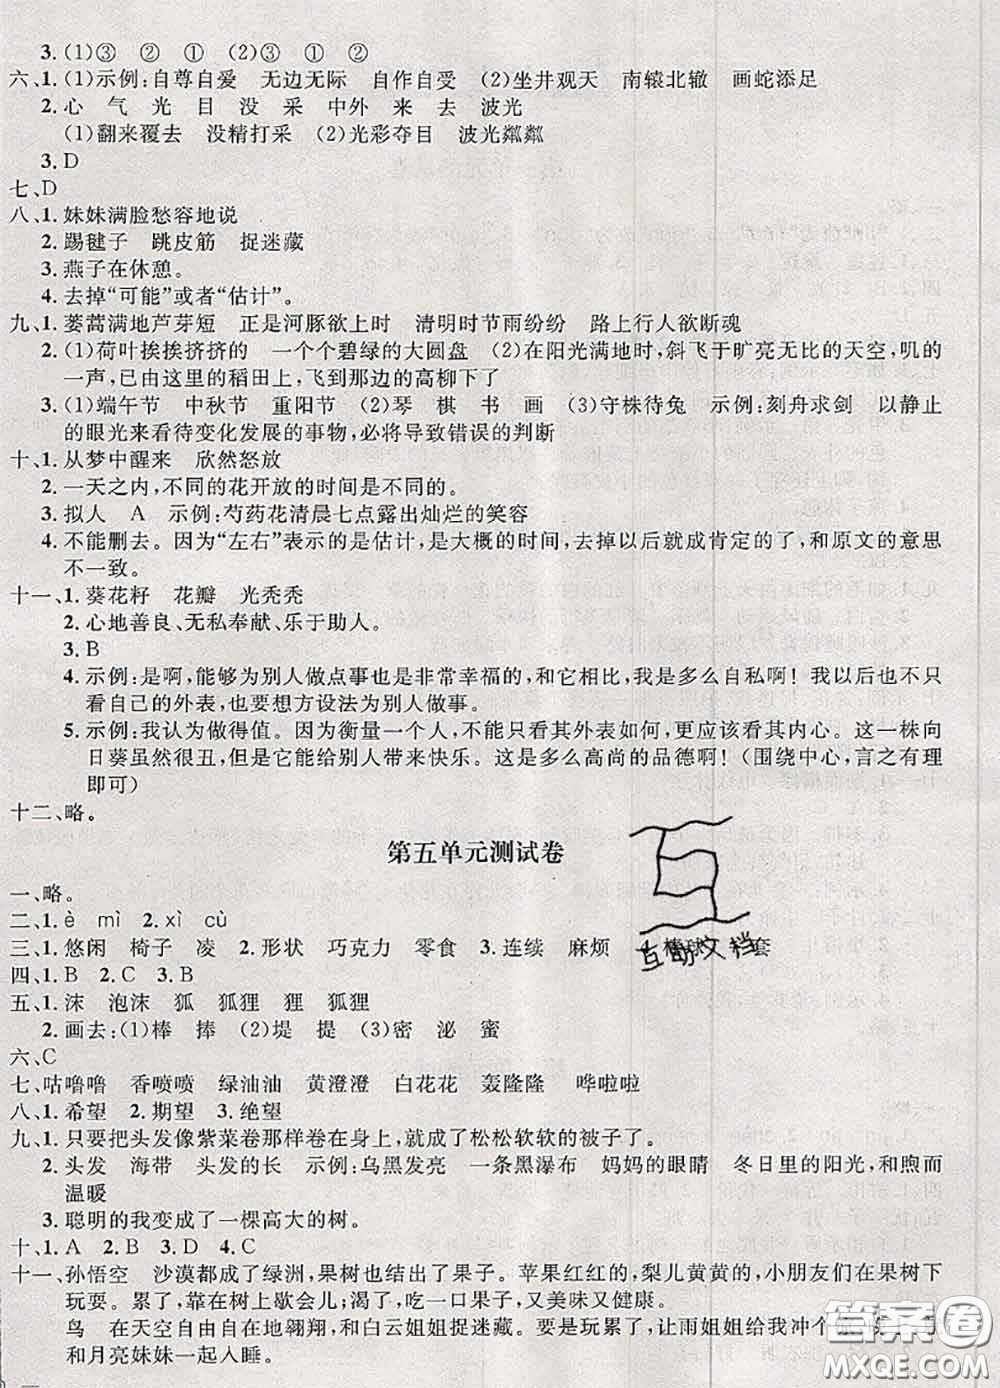 3. (1)③ ② ① (2)③ ① ②
六、1. (1)示例:自尊自爱 无边无际 自作自受 (2)坐井观天 南辕北辙 画蛇添足
2. 心 气 光 目 没 采 中外 来 去 波光
(1)翻来覆去 没精打采 (2)光彩夺目 波光粼粼
3. D
七、D
八、1. 妹妹满脸愁容地说
2. 踢毽子 跳皮筋 捉迷藏
3. 燕子在休憩。
4. 去掉“可能”或者“估计”。
九、1. 蒌蒿满地芦芽短 正是河豚欲上时 清明时节雨纷纷 路上行人欲断魂
2. (1)荷叶挨挨挤挤的 一个个碧绿的大圆盘 (2)在阳光满地时,斜飞于旷亮无比的天空,叽的
一声,已由这里的稻田上,飞到那边的高柳下了
3. (1)端午节 中秋节 重阳节 (2)琴 棋 书 画 (3)守株待兔 示例:刻舟求剑 以静止
的眼光来看待变化发展的事物,必将导致错误的判断
十、1. 从梦中醒来 欣然怒放
2. 一天之内,不同的花开放的时间是不同的。
3. 拟人 A 示例:芍药花清晨七点露出灿烂的笑容
4. 不能删去。因为“左右”表示的是估计,是大概的时间,去掉以后就成肯定的了,和原文的意思
不一致。
十一、1. 葵花籽 花瓣 光秃秃
2. 心地善良、无私奉献、乐于助人。
3. B
4. 示例:是啊,能够为别人做点事也是非常幸福的,和它相比,我是多么自私啊! 我以后也不只
看自己的外表,也要想方设法为别人做事。
5. 示例:我认为做得值。因为衡量一个人,不能只看其外表如何,更应该看其内心。这一株向
日葵虽然很丑,但是它能给别人带来快乐。这是多么高尚的品德啊!(围绕中心,言之有理
即可)
十二、略。
第五单元测试卷
一、略。
二、1. è mì 2. xì cù
三、1. 悠闲 椅子 凌 2. 形状 巧克力 零食 3. 连续 麻烦 棒球 套
互助文档
四、1. B 2. C 3. B
五、1. 沫 泡沫 狐 狐狸 狸 狐狸
2. 画去:(1)棒 捧 (2)堤 提 (3)密 泌 蜜
六、C
七、咕噜噜 香喷喷 绿油油 黄澄澄 白花花 轰隆隆 哗啦啦
八、1. 希望 2. 期望 3. 绝望
九、1. 只要把头发像紫菜卷那样卷在身上,就成了松松软软的被子了。
2. 头发 海带 头发的长 示例:乌黑发亮 一条黑瀑布 妈妈的眼睛 冬日里的阳光,和煦而
温暖
3. 聪明的我变成了一棵高大的树。
十、1. A 2. B 3. D 4. C
十一、孙悟空 沙漠都成了绿洲,果树也结出了果子。苹果红红的,梨儿黄黄的,小朋友们在果树下
玩耍。累了,靠在树上歇会儿,吃一口果子,又美味又健康。
鸟 在天空自由自在地翱翔,和白云姐姐捉迷藏。要是玩累了,让雨姐姐给我冲个
和月亮妹妹一起入睡。
答案圈
MXQE.COM